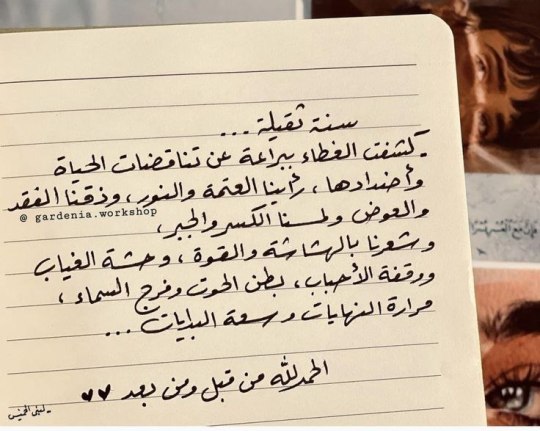 سنة ثقيلة ...
كشفت الغطاء ببراعة عن تناقضات الحياة
وأضدادها، رأينا العتمة والنور، وذقنا الفقد
@ gardenia.workshop
والعوض ولمسنا الكسر والجبر،
وشعرنا بالهشاشة والقوة، وحشة الغياب
ووقفة الأحباب، بطن الحوت وفرج السماء،
مرارة النهايات وسعة البدايات ...
الحمدلله من قبل ومن بعد ♥♥
- لبنى الخميس